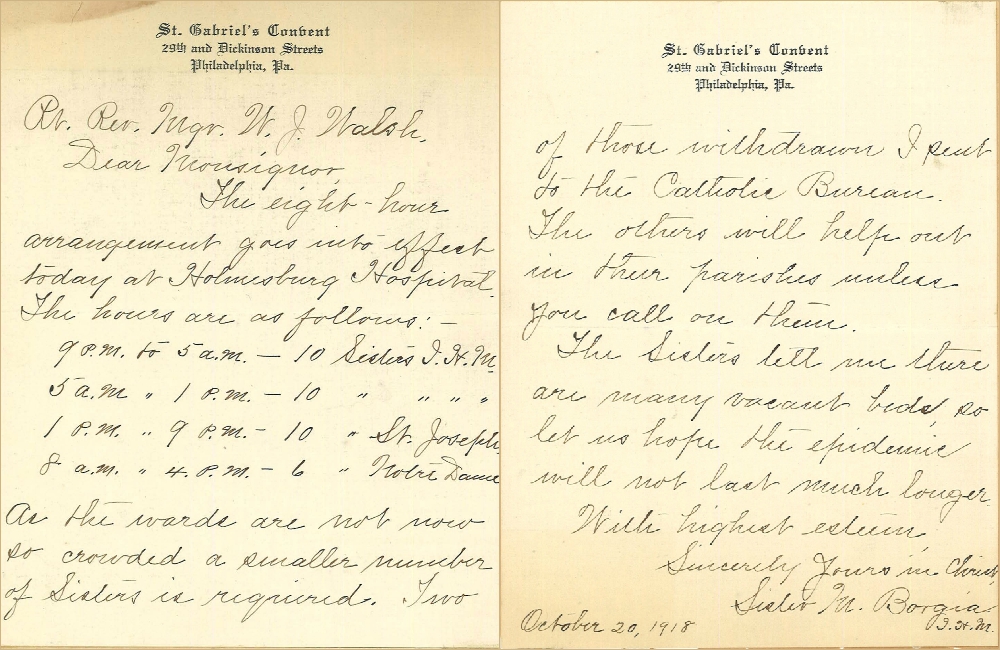 St. Gabriel's Convent
29th and Dickinson Streets
Philadelphia, Pa.
Rt. Rev. Mgr. W. J. Walsh,
Dear Monsignor,
The eight-hour
arrangement goes into effect
today at Holmesburg Hospital.
The hours are as follows:-
9 P.M. to 5 a.m. - 10 Sisters I.H.M.
5 a.m. " 1 P.M. - 10 " " " "
1 P.M. " 9 P.M. - 10 " St. Joseph
8 a.m. " 4 P.M. - 6 " Notre Dame
As the wards are not now
so crowded a smaller number
of Sisters is required. Two
St. Gabriel's Convent
29th and Dickinson Streets
Philadelphia, Pa.
of those withdrawn I sent
to the Catholic Bureau.
The others will help out
in their parishes unless
you call on them.
The Sisters tell me there
are many vacant beds, so
let us hope the epidemic
will not last much longer.
With highest esteem,
Sincerely Yours in Christ,
Sister M. Borgia
I.H.M.
October 20, 1918